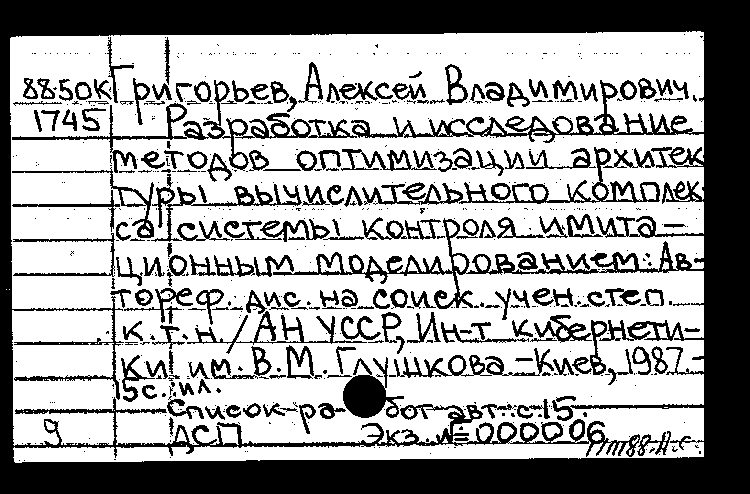 88-5ОК Григорьев, Алексей Владимирович.
1745 Разработка и исследование
методов оптимизации архитек
туры вычислительного комплек
са системы контроля имита-
ционным моделированием: Ав-
тореф. дис. на соиск. учен. степ.
к.т.н. / АН УССР, Ин-т кибернети-
ки им. В.М. Глушкова - Киев, 1987.-
15с. ил.
Список ра- бот авт.: с.15.
9 ДСП Экз. № 000006